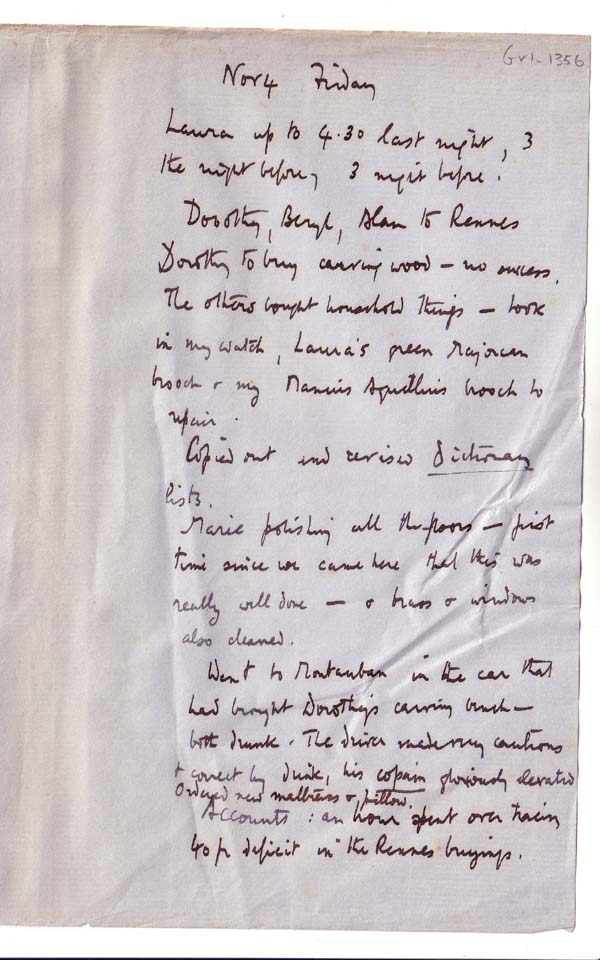 Gr1-1356
Nov 4 Friday
Laura up to 4.30 last night, 3
the night before, 3 night before.
Dorothy, Beryl, Alan to Rennes
Dorothy to buy carving wood — no success.
The others bought household things — took
in my watch, Laura's green Majorcan
brooch & my brooch to
repair.
Copied out and revised Dictionary
lists.
Marie polishing all the floors — first
time since we came here that this was
really well done — & brass & windows
also cleaned.
Went to Montauban in the car that
had brought Dorothy's carving bench —
both drunk. The driver made very cautious
& correct by drink, his copain gloriously elevated
Ordered new mattress & pillow.
Accounts: an hour spent over tracing
40 fr deficit in the Rennes buyings.